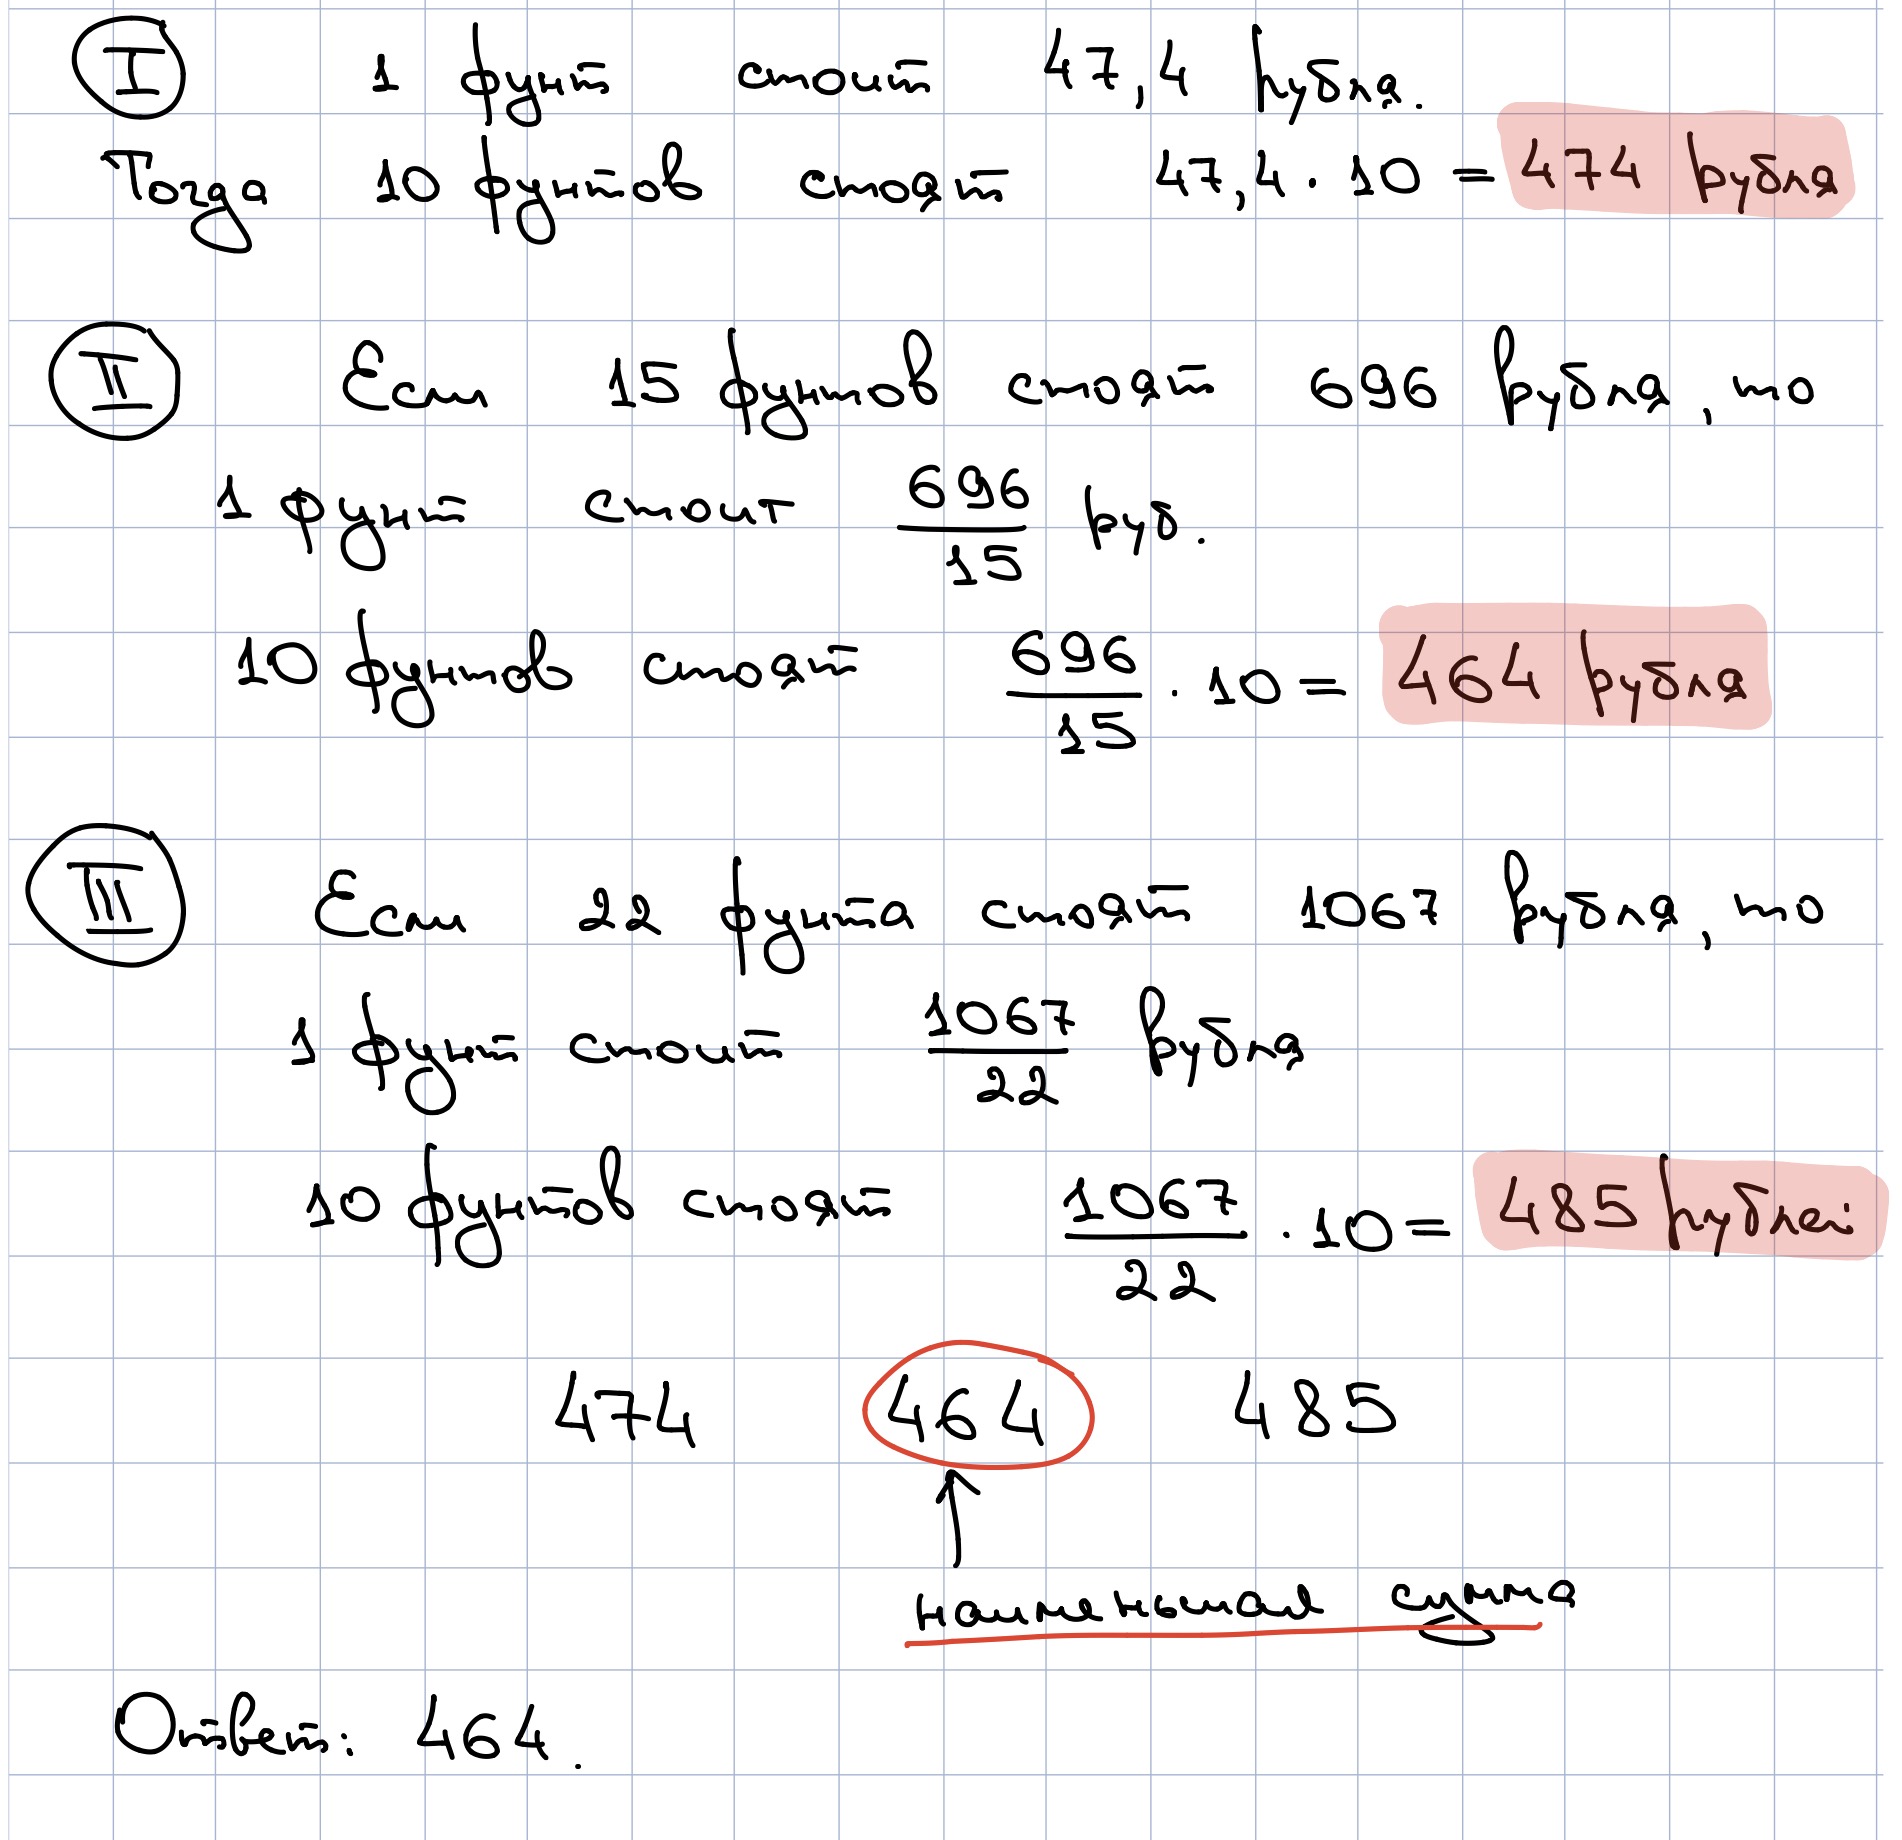 I 1 фунт стоит 47,4 рубля.
Тогда 10 фунтов стоят 47,4 · 10 = 474 рубля
II Если 15 фунтов стоят 696 рубля, то
1 фунт стоит 696/15 руб.
10 фунтов стоят 696/15 · 10 = 464 рубля
III Если 22 фунта стоят 1067 рубля, то
1 фунт стоит 1067/22 рубля
10 фунтов стоят 1067/22 · 10 = 485 рублей
474 464 485
наименьшая сумма
Ответ: 464.